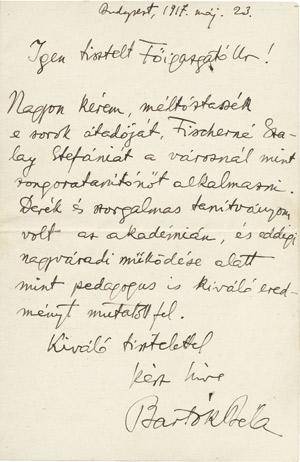 Budapest, 1917. máj. 23.
Igen tisztelt Főigazgató Úr!
Nagyon kérem, méltóztassék
e sorok átadóját, Fischerné Sza-
lay Stefániát a városnál mint
zongoratanítónőt alkalmazni.
Derék és szorgalmas tanítványom
volt az akadémián, és eddigi
nagyváradi működése alatt
mint pedagogus is kiváló ered-
ményt mutatott fel.
Kiváló tisztelettel
kész híve
Bartók Béla